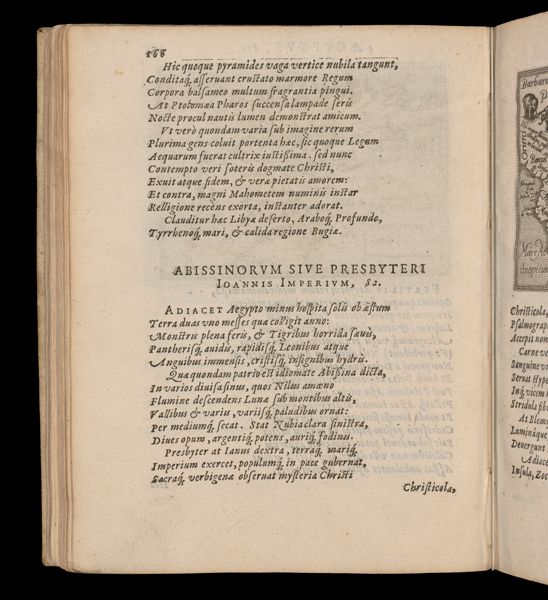 166
Hic quoque pyramides vaga vertice nubila tangunt,
Conditaq́ asseruant crustato marmore Regum
Corpora balsameo multum fragrantia pingui.
At Ptolomæa Pharos succensa lampade seris
Nocte procul nautis lumen demonstrat amicum.
Vt verò quondam varia sub imagine rerum
Plurima gens coluit portenta hæc, sic quoque Legum
Aequarum fuerat cultrix iustißima. sed nunc
Contempto veri soteris dogmate Christi,
Exuit atque fidem, & veræ pietatis amorem:
Et contra, magni Mahometem numinis instar
Relligione recens exorta, instanter adorat.
Clauditur hæc Libyæ deserto, Araboq́ Profundo,
Tyrrhenoq́ mari, & calida regione Bugiæ.
ABISSINORVM SIVE PRESBYTERI
IOANNIS IMPERIVM, 82.
ADIACET Aegypto minus hospita solis ob æstum
Terra duas vno messes quæ colligit anno:
Monstris plena feris, & Tigribus horrida sæuis,
Pantherisq́ auidis, rapidisq́ Leonibus atque
Anguibus immensis, cristisq́ insignibus hydris.
Quæ quondam patrio est idiomate Abißina dicta,
In varios diuisa sinus, quos Nilus amœno
Flumine descendens Lunæ sub montibus altis,
Vallibus & variis, variisq́ paludibus ornat:
Per mediumq́ secat. Stat Nubia clara sinistra,
Diues opum, argentiq́ potens, auriq́ fodinis.
Presbyter at Ianus dextra, terraq́ mariq́
Imperium exercet, populumq́ in pace gubernat,
Sacraq́ verbigenæ obseruat mysteria Christi
Christicola,
Barbari
Christicola,
Psalmograp
Accepit nom
Carne ve
Sanguine vi
Seruat Hype
Inq́ vicem h
Stridula
At Blem
Lumináque
Deuergunt
Adiace
Insula, Zoc